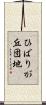 ひばりが
丘団地